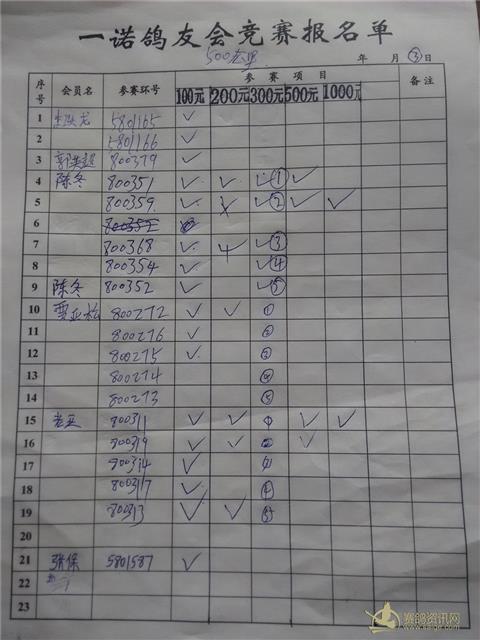 一诺鸽友会竞赛报名单
500公里 年 月 ③ 日
序号 会员名 参赛环号 参赛项目 备注
100元 200元 300元 500元 1000元
1 5801165 ✓
2 5801166 ✓
3 800379 ✓
4 陈冬 800351 ✓ ✓ ✓① ✓
5 800359 ✓ ✓ ✓② ✓ ✓
6
7 800368 ✓ ✓ ✓③
8 800354 ✓ ✓④
9 陈冬 800352 ✓ ✓⑤
10 贾亚松 800272 ✓ ✓ ①
11 800276 ✓ ②
12 800275 ✓ ③
13 800274 ④
14 800273 ⑤
15 老亚 800311 ✓ ✓ ① ✓ ✓
16 800319 ✓ ✓ ② ✓
17 800314 ✓
18 800317 ✓ ④
19 800313 ✓ ✓ ⑤
20
21 张保 5801587 ✓
22
23
赛鸽资讯网
www.saige.com